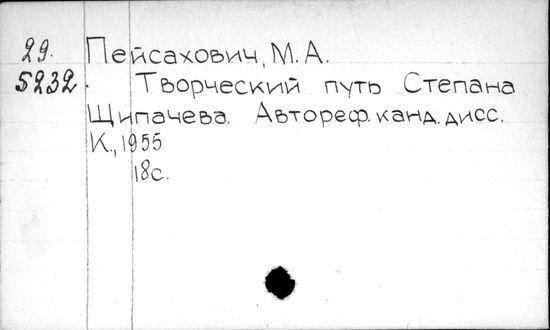 29. Пейсахович, М. А.
5232. Творческий путь Степана
Щипачева. Автореф. канд. дисс.
К., 1955
18с.